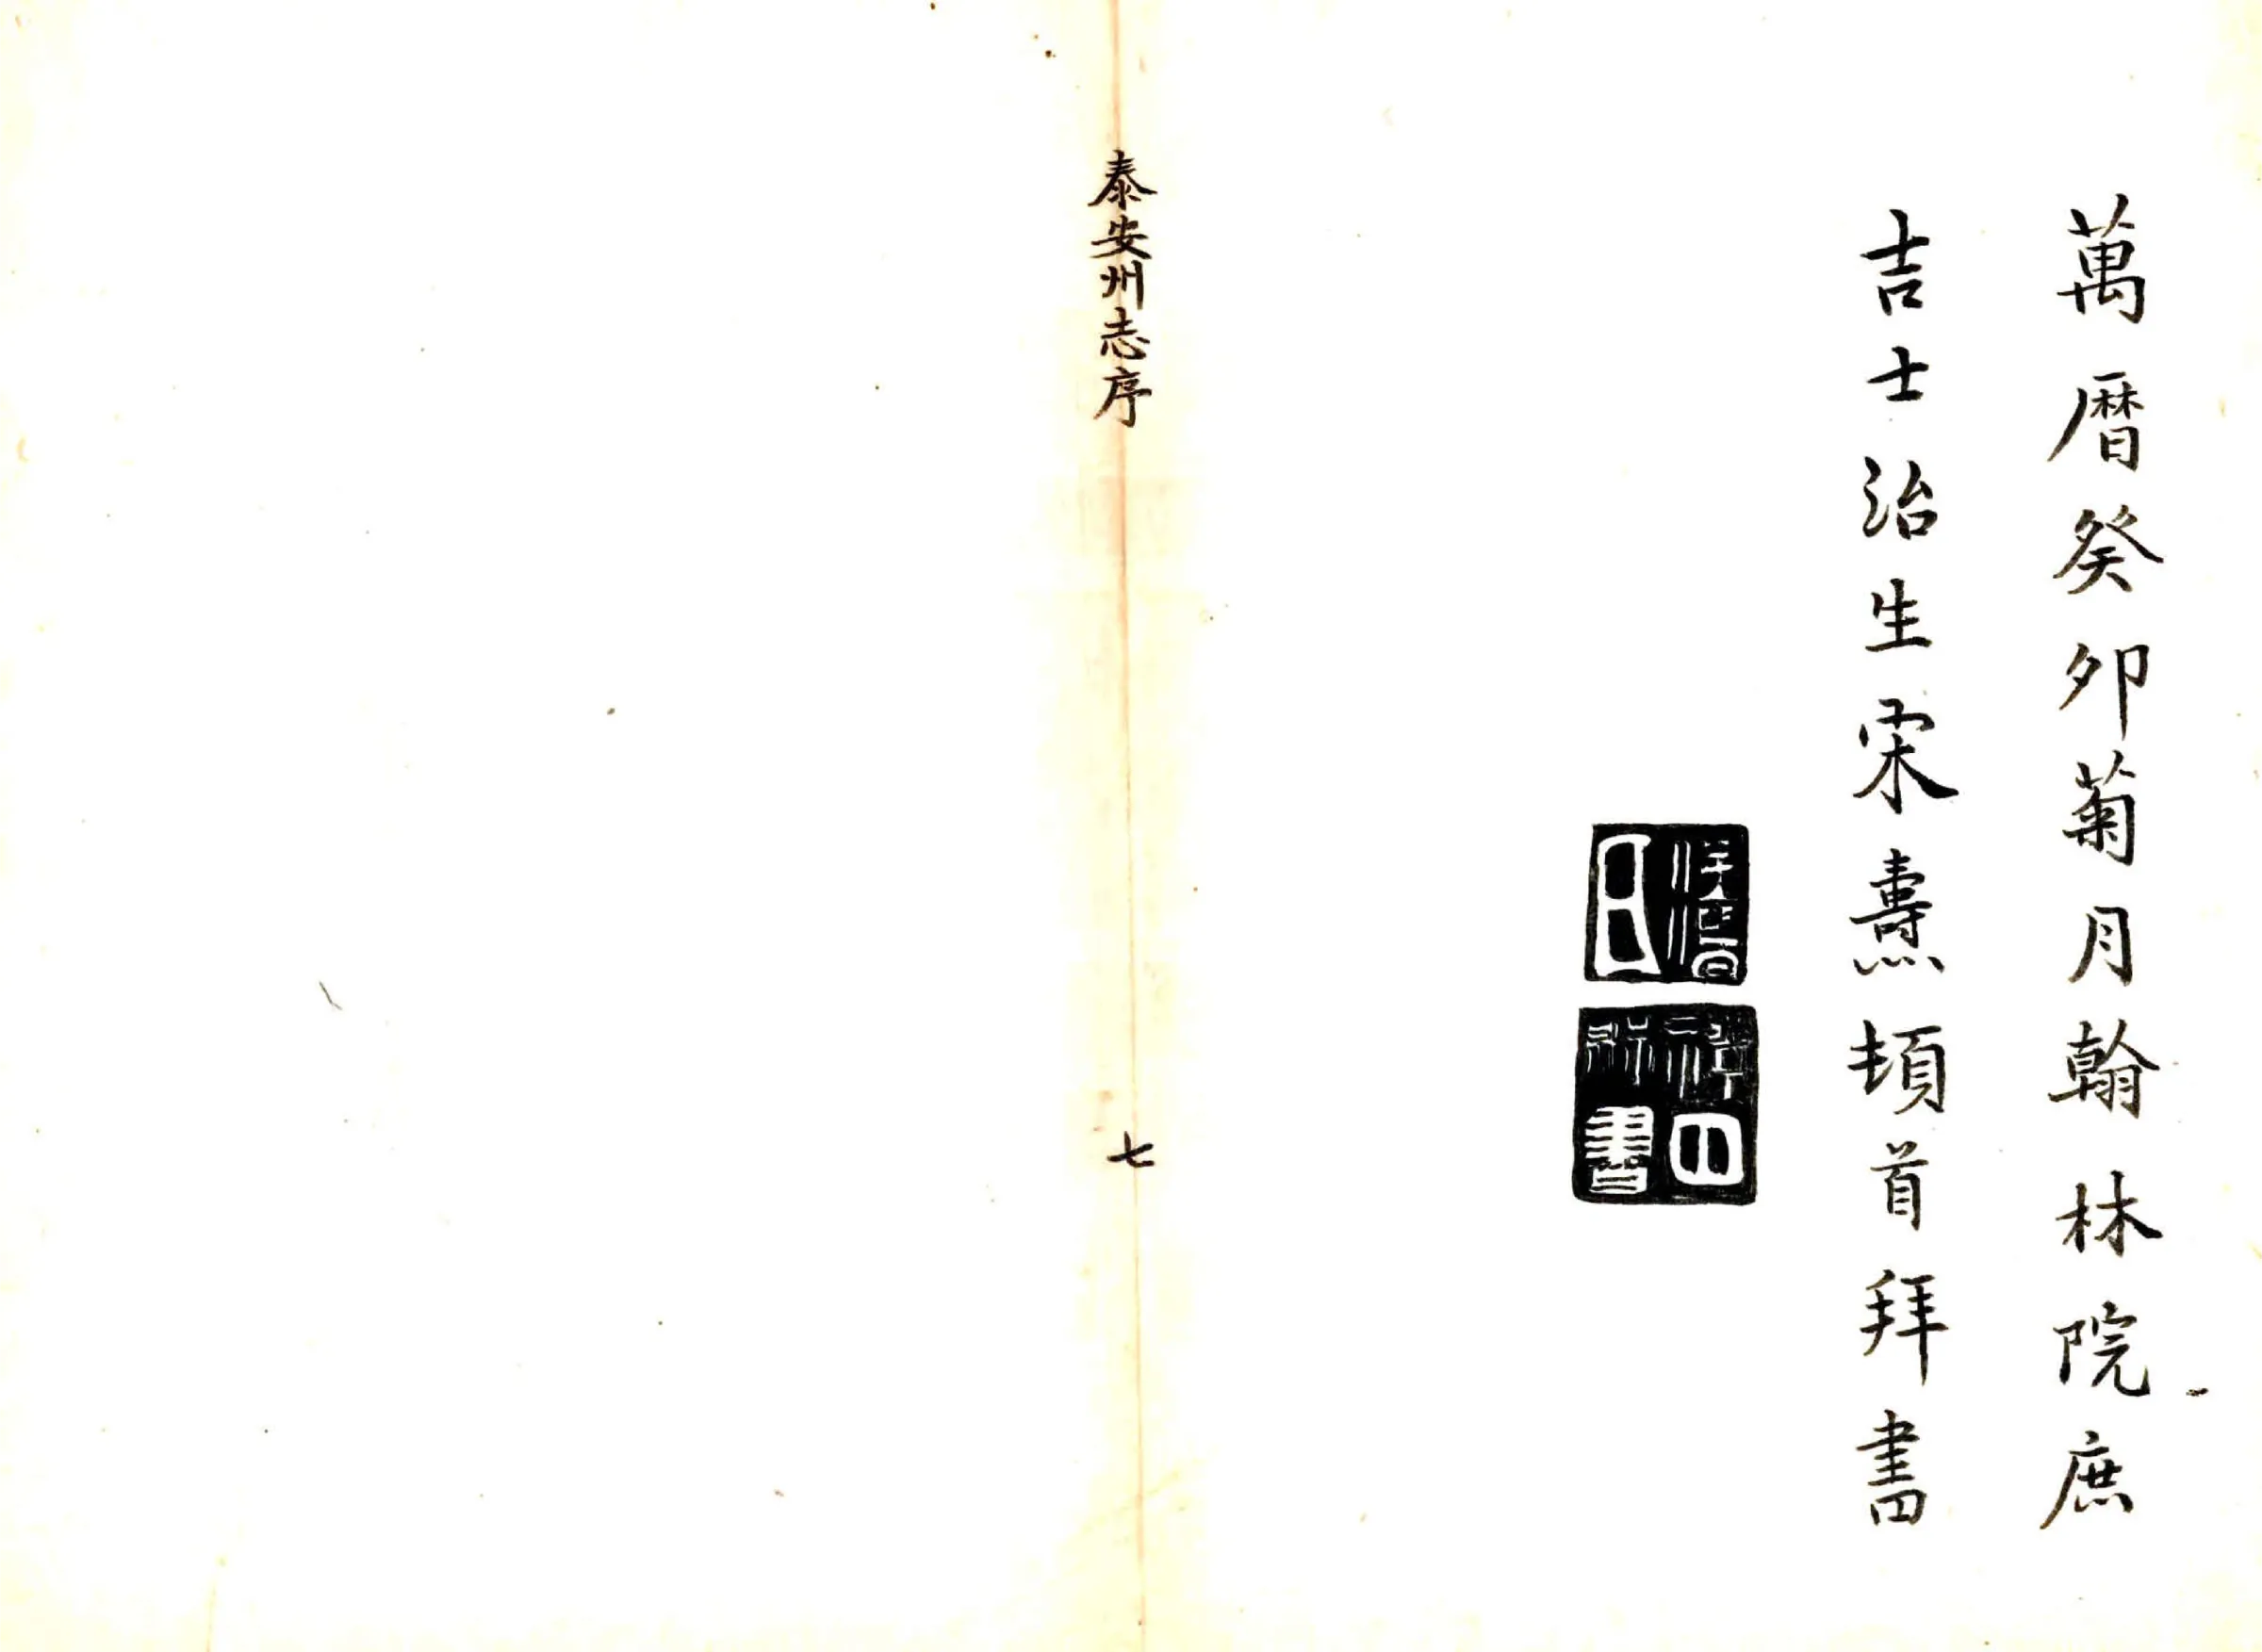 萬曆癸卯菊月翰林院庶
吉士治生宋燾頓首拜書
泰安州志序
七